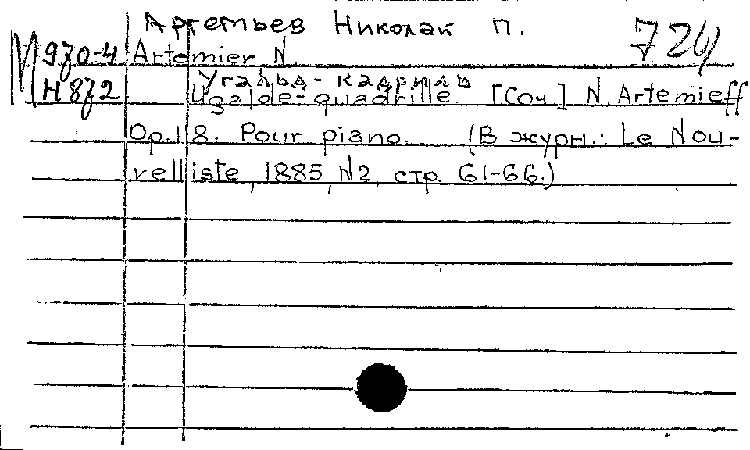 Артемьев Николай П.
724
М 970-4 Artemier N.
Н 872 Угальд-кадриль
Ugalde-quadrille. [Соч.] N. Artemieff
Op. 18. Pour piano. (В журн.: Le Nou-
velliste, 1885, N2, стр. 61-66.)